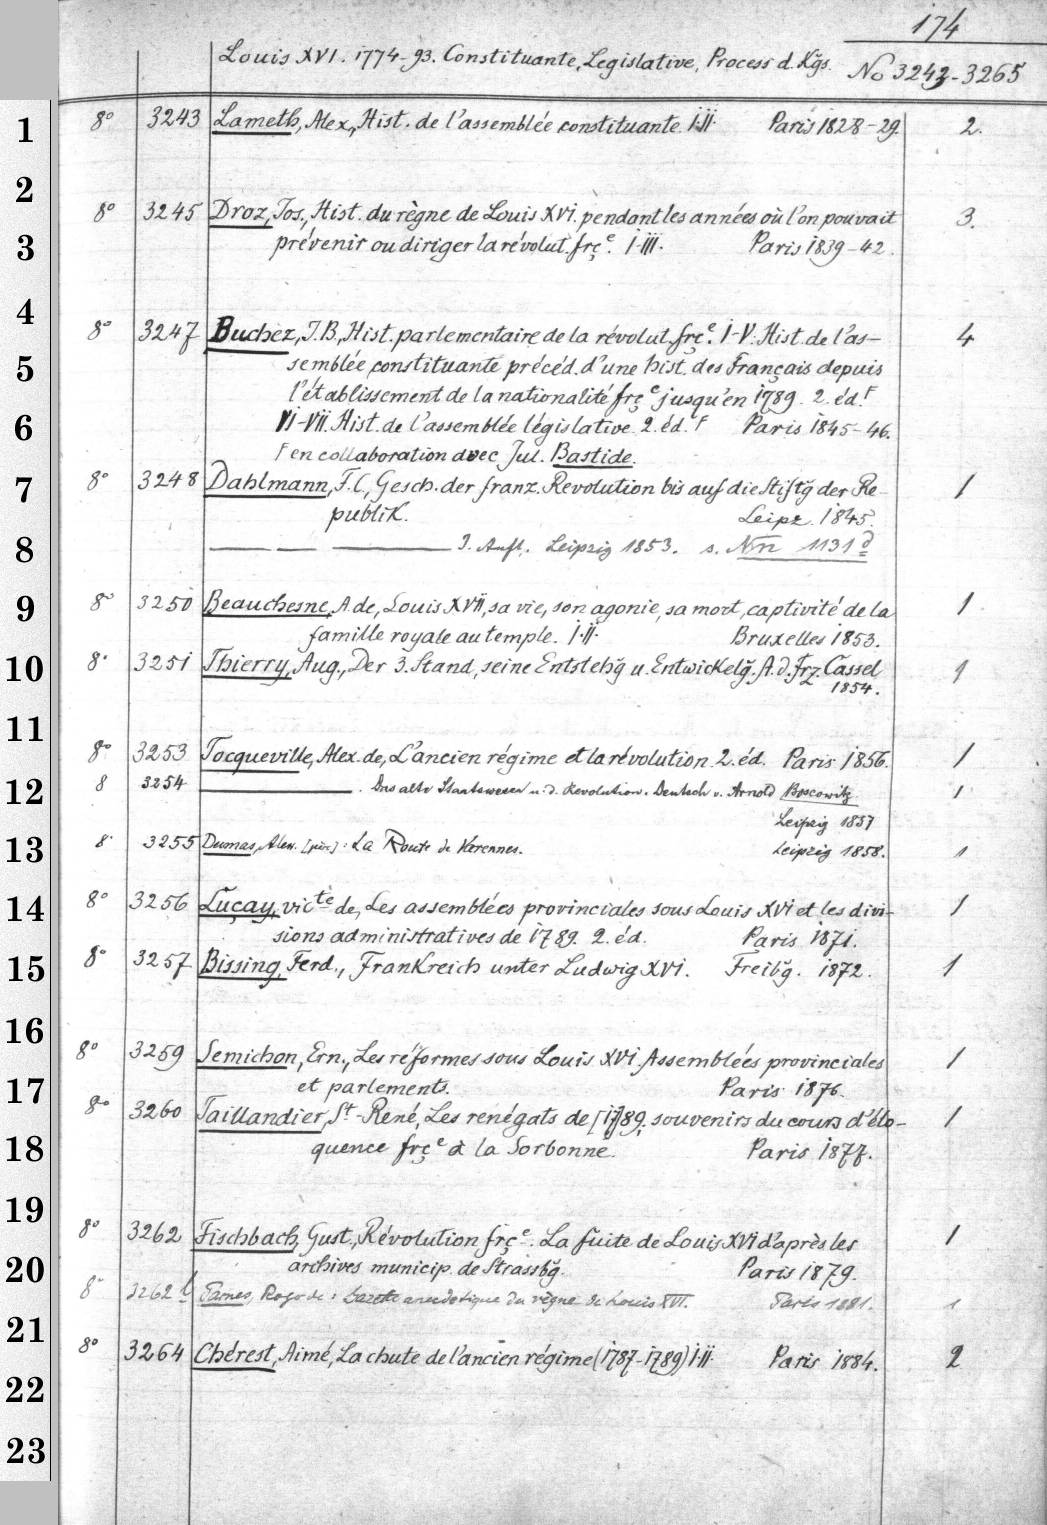 174
Louis XVI. 1774-93. Constituante, Legislative, Process d. Kgs. No 3243-3265
1 8° 3243 Lameth, Alex., Hist. de l'assemblée constituante I.II. Paris 1828-29. 2.
2
8° 3245 Droz, Jos., Hist. du règne de Louis XVI. pendant les années où l'on pouvait 3.
3 prévenir ou diriger la révolut. frçe. I-III. Paris 1839-42.
4
8° 3247 Buchez, J.B., Hist. parlementaire de la révolut. frçe. I-V. Hist. de l'as- 4
5 semblée constituante précéd. d'une hist. des Français depuis
l'établissement de la nationalité frçe jusqu'en 1789. 2. éd. F
6 VI-VII. Hist. de l'assemblée législative 2. éd. F Paris 1845-46.
F en collaboration avec Jul. Bastide.
7 8° 3248 Dahlmann, F.C., Gesch. der franz. Revolution bis auf die Stiftg der Re- 1
publik. Leipz. 1845.
8 3. Aufl. Leipzig 1853. s. Nrn 1131d
9 8° 3250 Beauchesne, A de, Louis XVII, sa vie, son agonie, sa mort, captivité de la 1
famille royale au temple. I.II. Bruxelles 1853.
10 8° 3251 Thierry, Aug., Der 3. Stand, seine Entstehg u. Entwickelg. A. d. Frz. Cassel 1
1854.
11
8° 3253 Tocqueville, Alex. de, L'ancien régime et la révolution 2. éd. Paris 1856. 1
12 8 3254 . Das alte Staatswesen u. d. Revolution. Deutsch v. Arnold Boscowitz 1
Leipzig 1857
13 8° 3255 Dumas, Alex. [père]: La Route de Varennes. Leipzig 1858. 1
14 8° 3256 Luçay, victe de, Les assemblées provinciales sous Louis XVI et les divi- 1
sions administratives de 1789. 2. éd. Paris 1871.
15 8° 3257 Bissing, Ferd., Frankreich unter Ludwig XVI. Freibg. 1872. 1
16
8° 3259 Semichon, Ern., Les réformes sous Louis XVI. Assemblées provinciales 1
17 et parlements. Paris 1876.
8° 3260 Taillandier, St-René, Les renégats de [17]89, souvenirs du cours d'élo- 1
18 quence frçe à la Sorbonne. Paris 1877.
19
8° 3262 Fischbach, Gust., Révolution frçe. La fuite de Louis XVI d'après les 1
20 archives municip. de Strassbg. Paris 1879.
8° 3262 b Parnes, Roger de: Gazette anecdotique du règne de Louis XVI. Paris 1881. 1
21
8° 3264 Chérest, Aimé, La chute de l'ancien régime (1787-1789) I-II. Paris 1884. 2
22
23